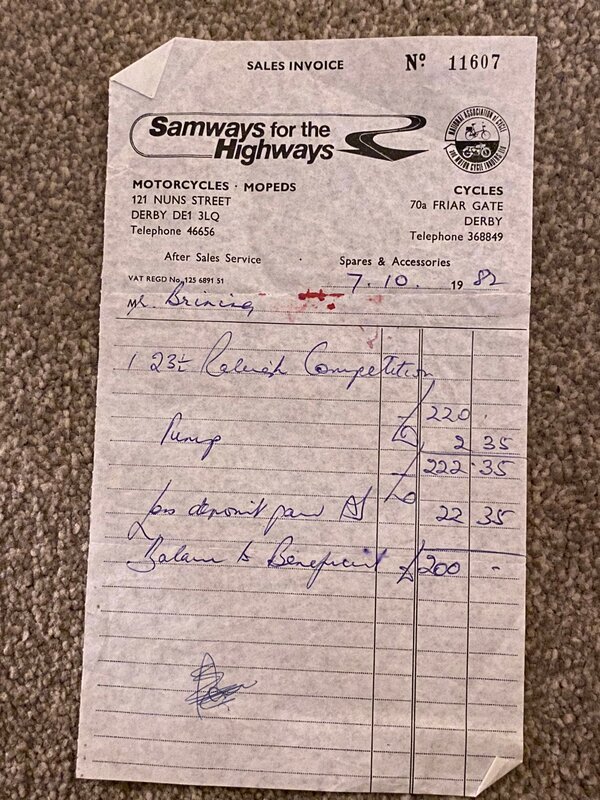 SALES INVOICE Nº 11607
Samways for the
Highways
NATIONAL ASSOCIATION OF CYCLE
MOTORCYCLES · MOPEDS
121 NUNS STREET
DERBY DE1 3LQ
Telephone 46656
CYCLES
70a FRIAR GATE
DERBY
Telephone 368849
After Sales Service · Spares & Accessories
VAT REGD No. 125 6891 51
7.10. 1982
Mr. Brining
1 23½ Raleigh Competition
£ 220 .
Pump 2 35
£ 222 · 35
Less deposit paid 22 35
Balance to Beneficial £ 200 -